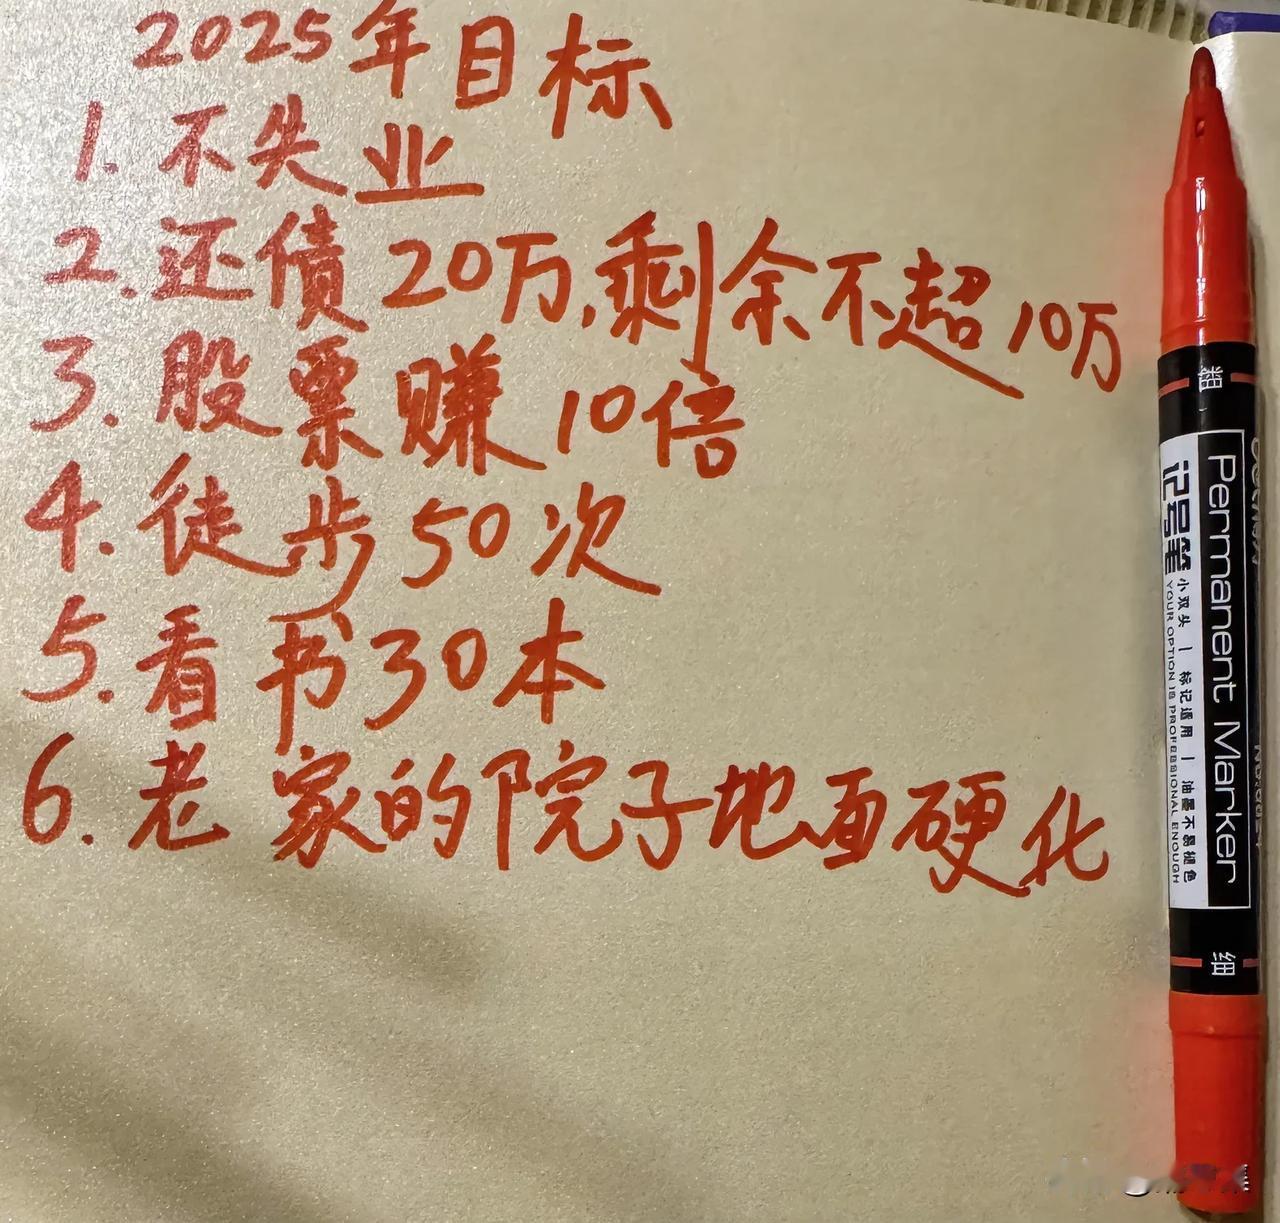 2025年目标
1. 不失业
2. 还债20万,剩余不超10万
3. 股票赚10倍
4. 徒步50次
5. 看书30本
6. 老家的院子地面硬化
Permanent Marker
记号笔
小双头 | 标记适用 | 油墨不易褪色
YOUR OPTION IS PROFESSIONAL ENOUGH
细